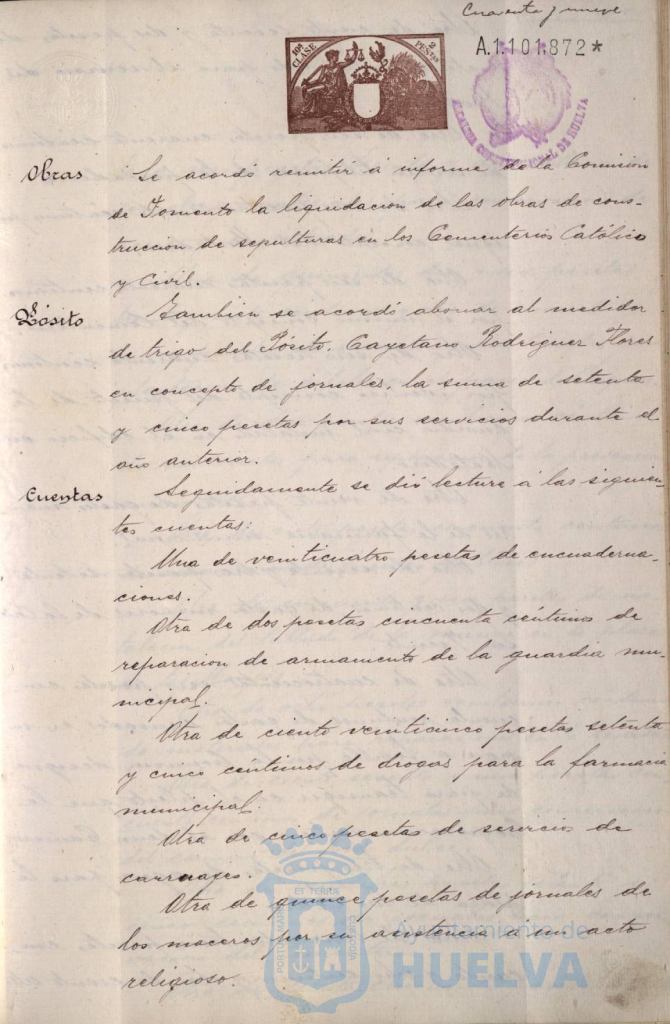 Cuarenta y nueve
10ª CLASE
2 PESETAS
A.1.101.872*
ALCALDIA CONSTITUCIONAL DE HUELVA
Obras
Se acordó remitir á informe de la Comision
de Fomento la liquidacion de las obras de cons-
truccion de sepulturas en los Cementerios Católico
y Civil.
Pósito
Tambien se acordó abonar al medidor
de trigo del Pósito, Cayetano Rodriguez Flores
en concepto de jornales, la suma de setenta
y cinco pesetas por sus servicios durante el
año anterior.
Cuentas
Seguidamente se dió lectura á las siguien-
tes cuentas:
Una de veinticuatro pesetas de encuaderna-
ciones.
Otra de dos pesetas cincuenta céntimos de
reparacion de armamento de la guardia mu-
nicipal.
Otra de ciento veinticinco pesetas setenta
y cinco céntimos de drogas para la farmacia
municipal.
Otra de cinco pesetas de servicio de
carruajes.
Otra de quince pesetas de jornales de
los maceros por su asistencia á un acto
religioso.
PORTUS MARIS ET TERRÆ CUSTODIA
Ayuntamiento de
HUELVA